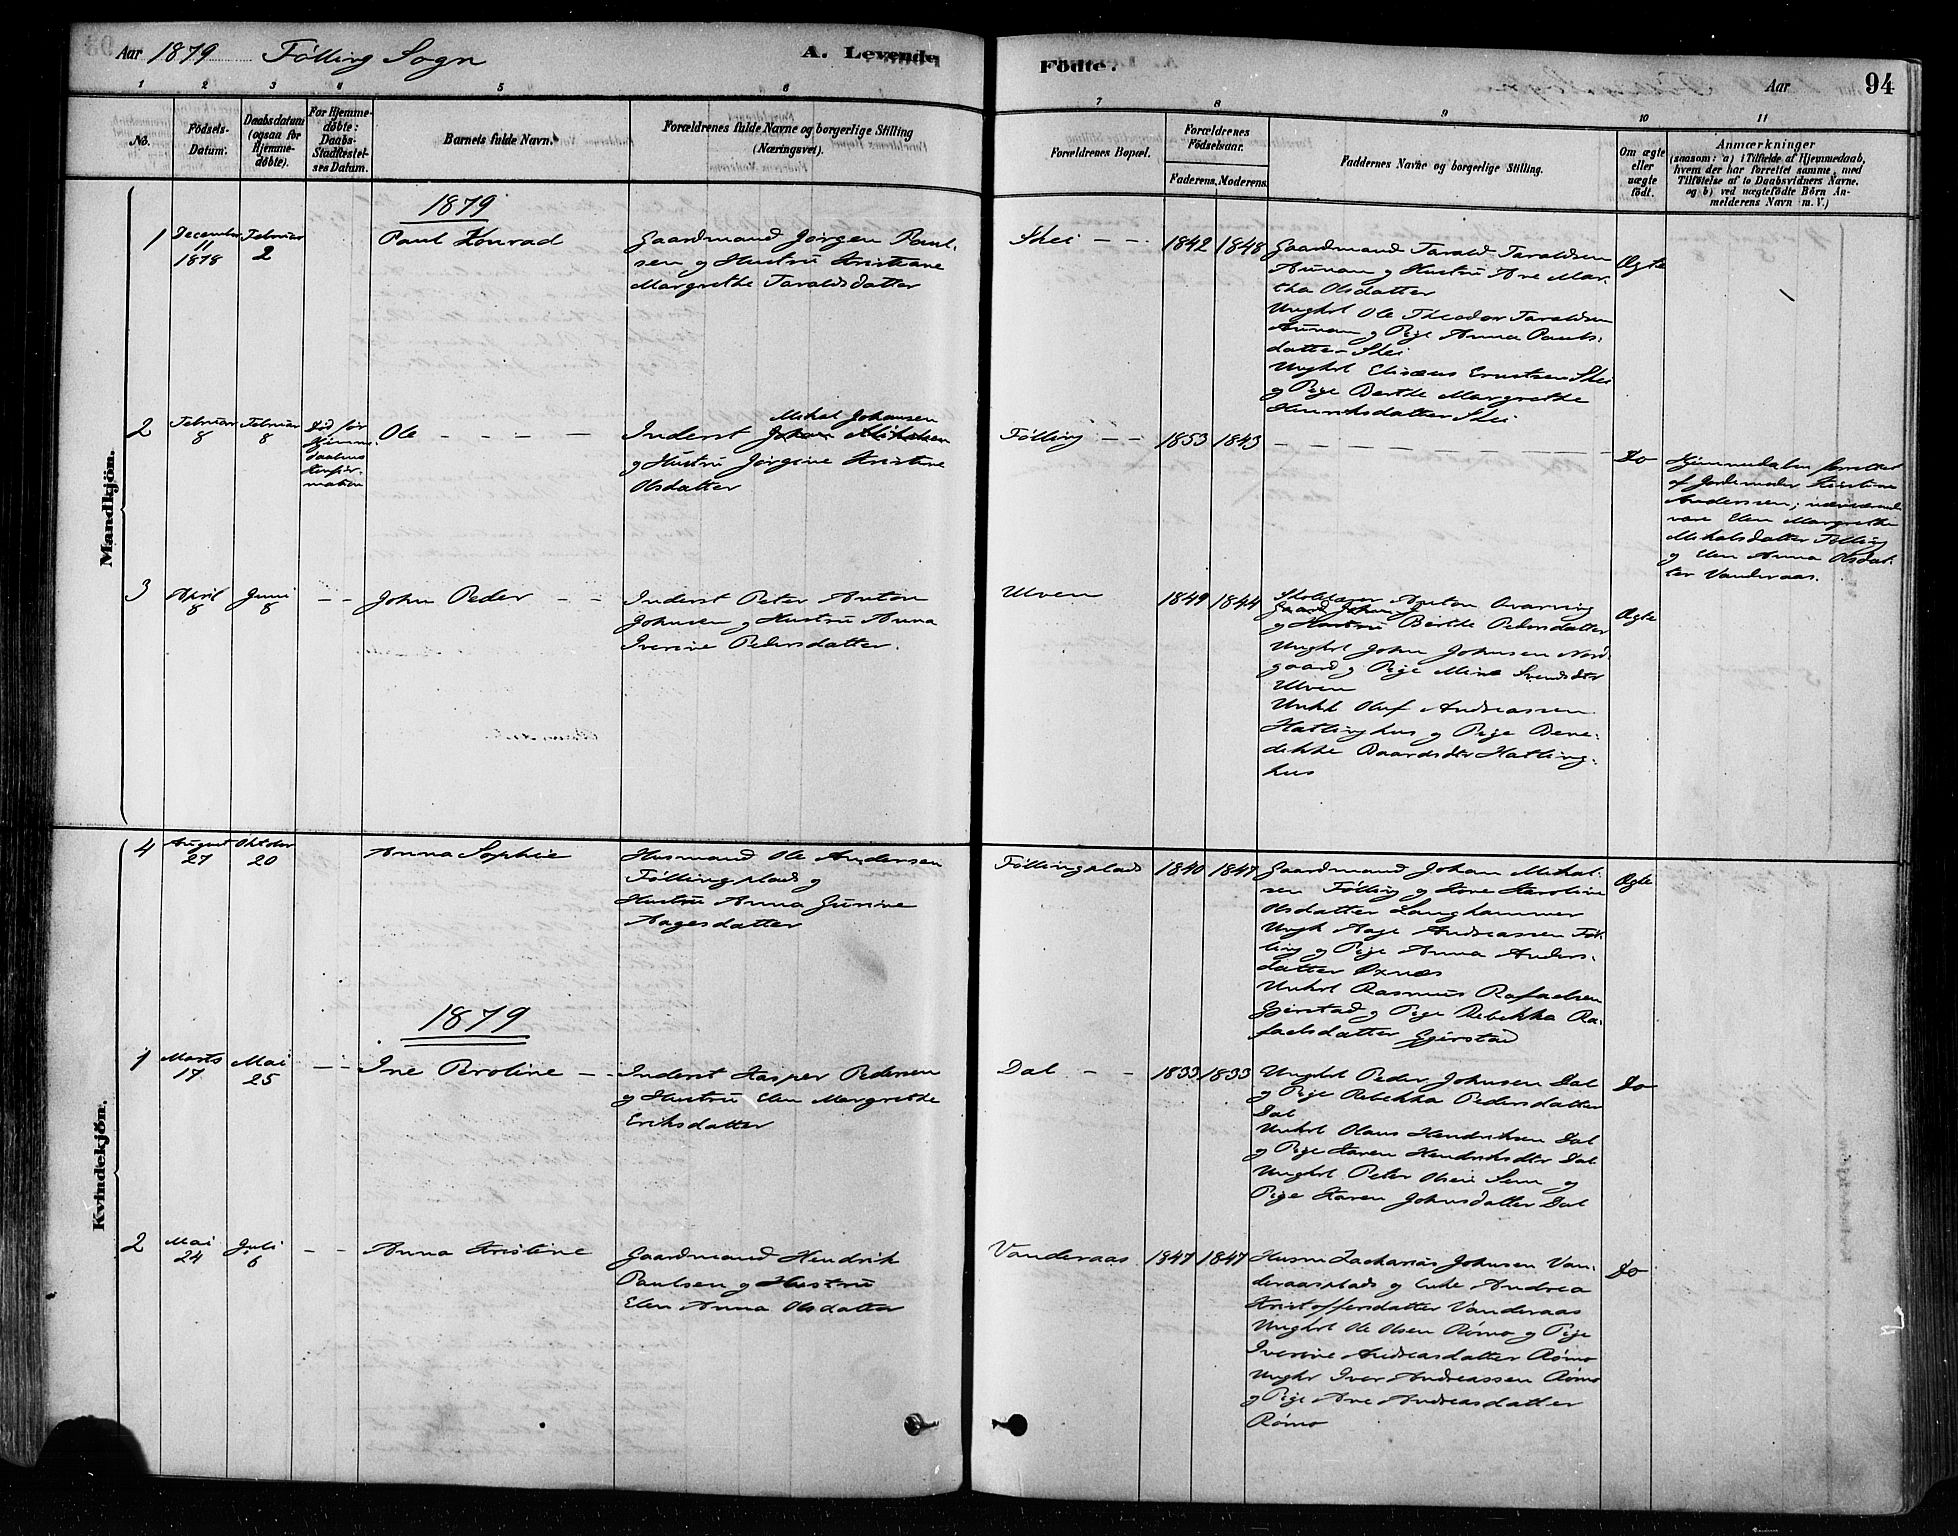 Aar 1879 Følling Sogn A. Levende Födte. Aar 94
1 2 3 4 5 6 7 8 9 10 11
No. Födsels-Datum. Daabsdatum (ogsaa for Hjemme-døbte). For Hjemme-døbte: Daabs-Stadfæstel-ses Datum. Barnets fulde Navn. Forældrenes fulde Navne og borgerlige Stilling (Næringsvei). Forældrenes Bopæl. Forældrenes Födselsaar. Faderens. Moderens. Faddernes Navne og borgerlige Stilling. Om ægte eller uægte födt. Anmærkninger
(saasom: a) i Tilfælde af Hjemmedaab,
hvem der har forrettet samme, med
Tilföielse af to Daabsvidners Navne,
og b) ved uægtefödte Börn An-
melderens Navn m. V.)
Mandkjön.
1879
1 December 11 1878 Februar 2 Paul Konrad
Gaardmand Jørgen Paul-
sen og Hustru Kristiane
Margrethe Taraldsdatter
Skei 1842 1848
Gaardmand Tarald Taraldsen
Aunan og Hustru Ane Mar-
tha Olsdatter
Unghrl Ole Theodor Taraldsen
Aunan og Pige Anna Pauls-
datter Skei
Unghrl Elisæus Erntsen Skei
og Pige Berthe Margrethe
Henriksdatter Skei
Ægte
2 Februar 8 Februar 8
Død før
Hjemme-
daabens
Konfir-
mation
Ole
Mikal Johansen
Inderst Johan Mikalsen
og Hustru Jørgine Kristine
Olsdatter
Følling 1853 1843
Do
Hjemmedaaben forrettet
af Jordemoder Kristine
Anderssen; nærværende
vare Elen Margrethe
Mikalsdatter Følling
og Elen Anna Olsdat-
ter Vanderaas.
3 April 8 Juni 8 John Peder
Inderst Peter Anton
Johnsen og Hustru Anna
Iverine Pedersdatter.
Ulven 1849 1844
Skolelærer Anton Kvarving
Gaard Johan J
og Hustru Berthe Pedersdatter
Unghrl John Johnsen Nord-
gaard og Pige Mine Svendsdtr
Ulven
Unkl Oluf Andreassen
Hatlinghus og Pige Bene-
dikke Baardsdtr Hatling-
hus
Ægte
4 August 27 Oktober 20 Anna Sophie
Husmand Ole Andersen
Føllingplads og
Hustru Anna Gurine
Aagesdatter
Føllingplads 1840 1847
Gaardmand Johan Mikal-
sen Følling og Kone Karoline
Olsdatter Langhammer
Ungk Aage Andreassen Føl-
ling og Pige Anna Anders-
datter Oxnæs
Unkrl Rasmus Rafaelsen
Gjørstad og Pige Rebekka Ra-
faelsdatter Gjørstad
Ægte
Kvindekjön.
1879
1 Marts 17 Mai 25 Ine Peroline
Inderst Kasper Pedersen
og Hustru Elen Margrethe
Eriksdatter
Dal 1833 1833
Unghrl Peder Johnsen Dal
og Pige Rebekka Pedersdatter
Dal
Unkrl Olaus Hendriksen Dal
og Pige Karen Hendriksdtr Dal
Unghrl Peter Olsen Sem og
Pige Karen Johnsdatter Dal
Do
2 Mai 24 Juli 6 Anna Kristine
Gaardmand Hendrik
Paulsen og Hustru
Elen Anna Olsdatter
Vanderaas 1847 1847
Husm Zacharias Johnsen Van-
deraasplads og Enke Andrea
Kristoffersdatter Vanderaas
Unghrl Ole Olsen Rømo og Pige
Iverine Andreasdatter Rømo
Unghr Iver Andreassen Rømo
og Pige Ane Andreasdatter
Rømo
Do